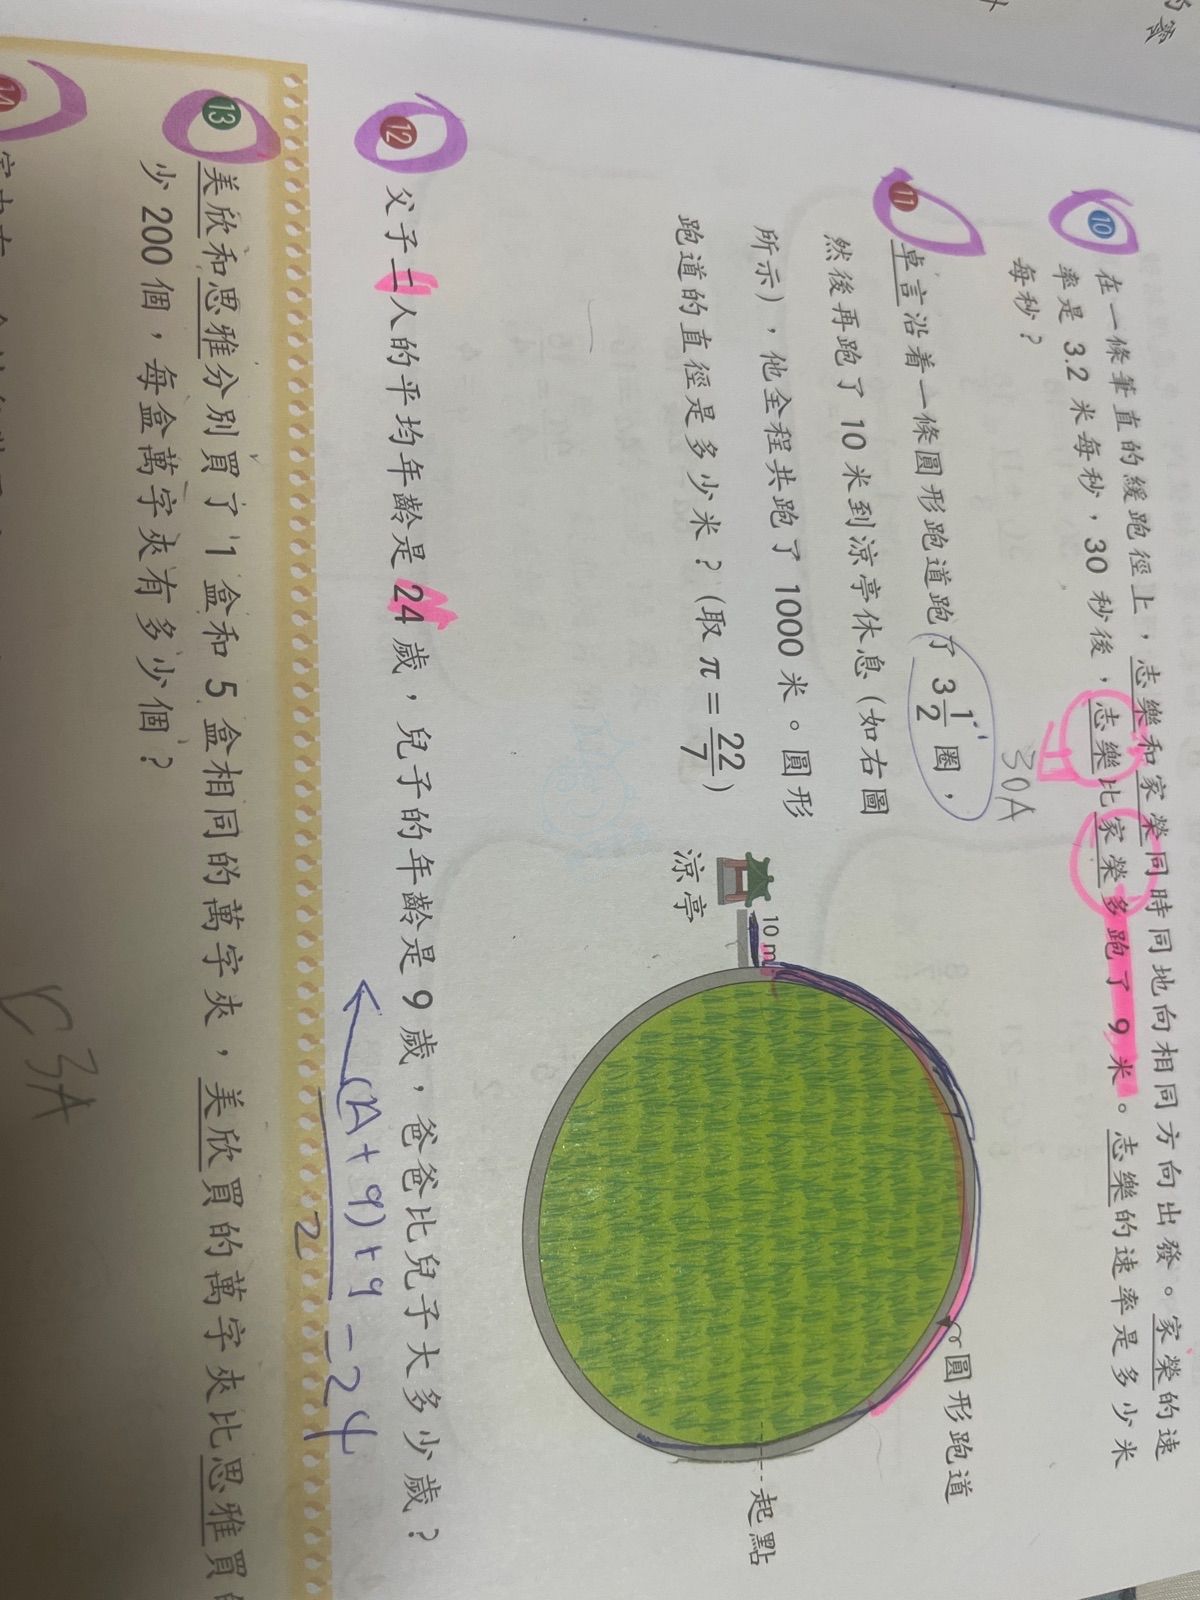 10 在一條筆直的緩跑徑上，志樂和家榮同時同地向相同方向出發。家榮的速
率是 3.2 米每秒，30 秒後，志樂比家榮多跑了 9 米。志樂的速率是多少米
每秒？
30A
11 卓言沿着一條圓形跑道跑了 3 1/2 圈，
然後再跑了 10 米到涼亭休息（如右圖
所示），他全程共跑了 1000 米。圓形
跑道的直徑是多少米？（取 π = 22/7）
圓形跑道
10 m
涼亭
起點
12 父子二人的平均年齡是 24 歲，兒子的年齡是 9 歲，爸爸比兒子大多少歲？
(A+9)+9
2
24
13 美欣和思雅分別買了 1 盒和 5 盒相同的萬字夾，美欣買的萬字夾比思雅買的
少 200 個，每盒萬字夾有多少個？
3A
14